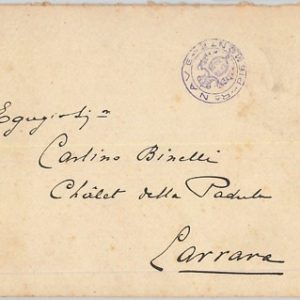 Egregio Sig.r
Carlino Binelli
Châlet della Padula
Carrara